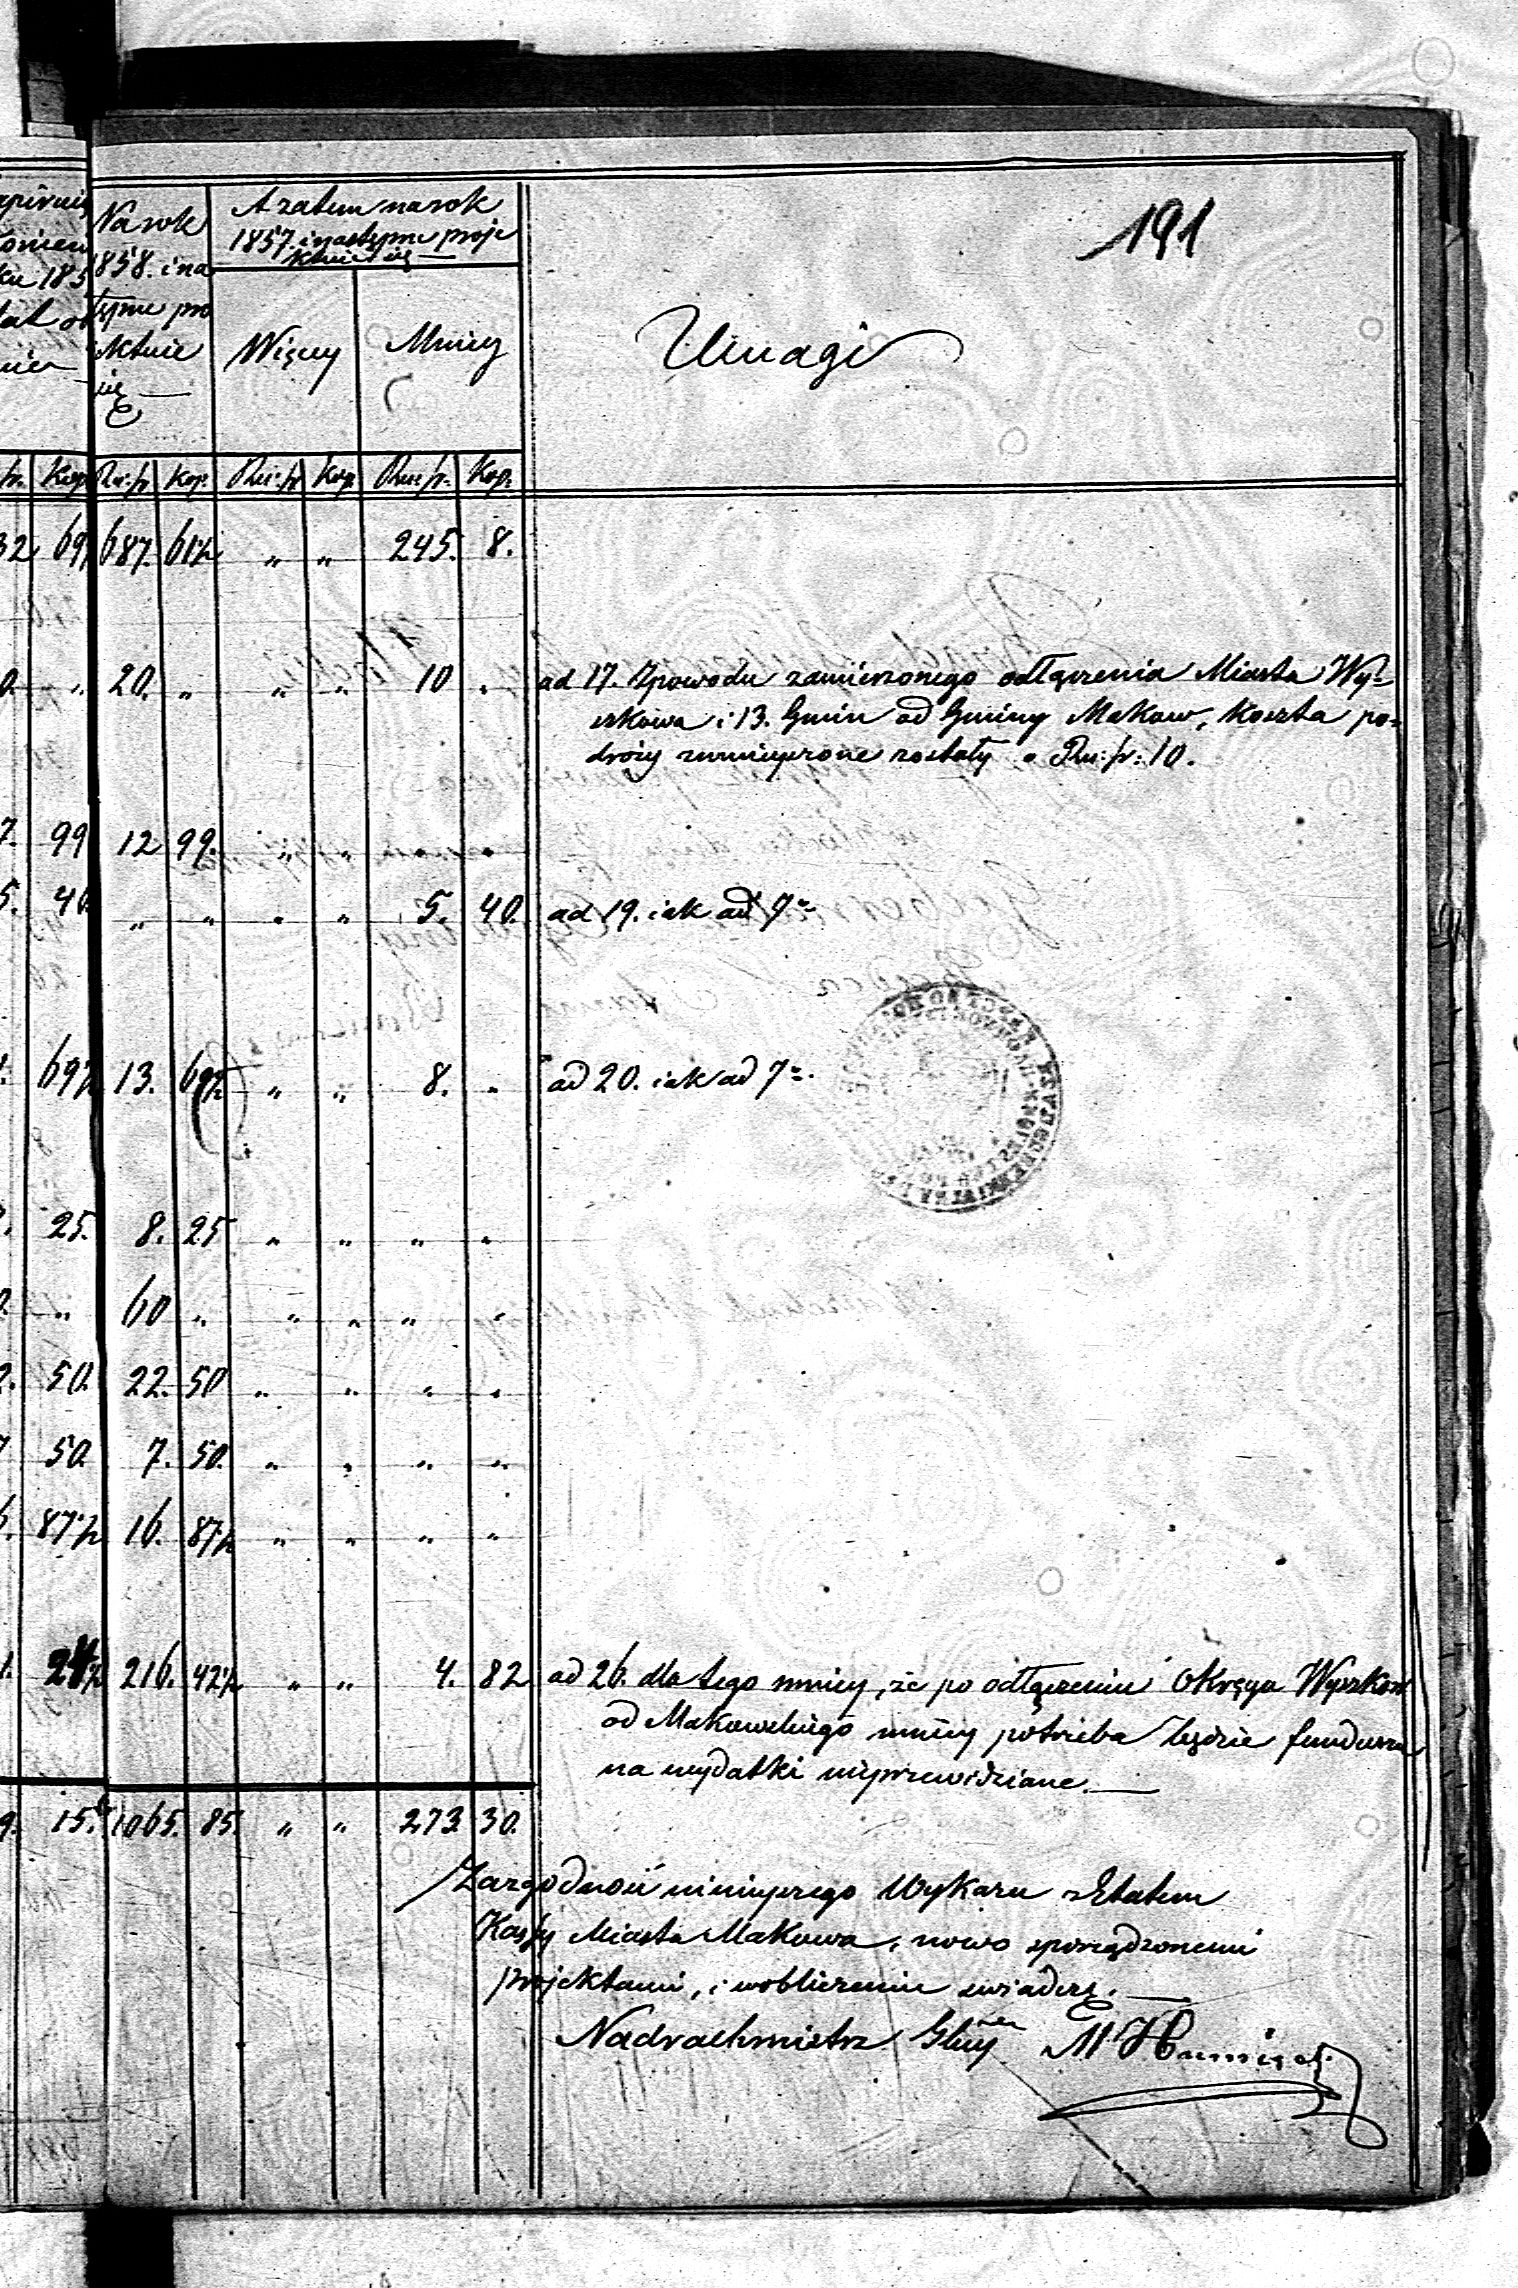 191
Na rok
1858. i na
stępne pro
iektuie
się
A zatem na rok
1857. i następne proje
ktuie się
Więcey
Mniey
Uwagi
Kop. Ru:sr Kop: Ru:sr Kop Ru:sr. Kop:
32 69 687. 61½ " " 245. 8.
0. " 20. " " " 10 "
ad 17. Zpowodu zamierzonego odłączenia Miasta Wy-
szkowa i 13. Gmin od Gminy Makow, koszta po-
droży zmnieyszone zostały o Ru:sr: 10.
7. 99 12 99. " " " "
5. 40. " " " " 5. 40.
ad 19. iak ad 7m
69½ 13. 69½ " " 8. "
ad 20. iak ad 7m.
25. 8. 25 " " " "
" 60 " " " " "
2. 50. 22. 50 " " " "
7 50. 7. 50. " " " "
6. 87½ 16. 87½ " " " "
1. 24½ 216. 42½ " " 4. 82
ad 26. dla tego mniey, że po odłączeniu Okręgu Wyszkow
od Makowskiego mniey potrzeba będzie funduszu
na wydatki nieprzewidziane.
9. 15. 1065. 85. " " 273 30.
Za zgodność ninieyszego Wykazu z Etatem
Kassy Miasta Makowa, nowo sporządzonemi
projektami, i w obliczeniu zwiadczę.
Nadrachmistrz